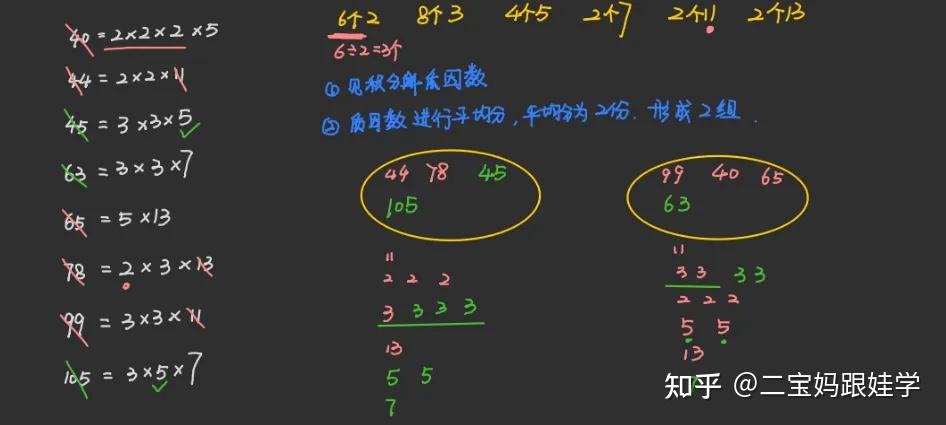 6个2 8个3 4个5 2个7 2个11 2个13
6÷2=3个
40=2×2×2×5
44=2×2×11
45=3×3×5
63=3×3×7
65=5×13
78=2×3×13
99=3×3×11
105=3×5×7
① 见积分解质因数
② 质因数进行平均分,平均分为2份.形成2组.
44 78 45
105
11
2 2 2
3 3 3 3
13
5 5
7
99 40 65
63
11
3 3 3 3
2 2 2
5 5
13
知乎 @二宝妈跟娃学